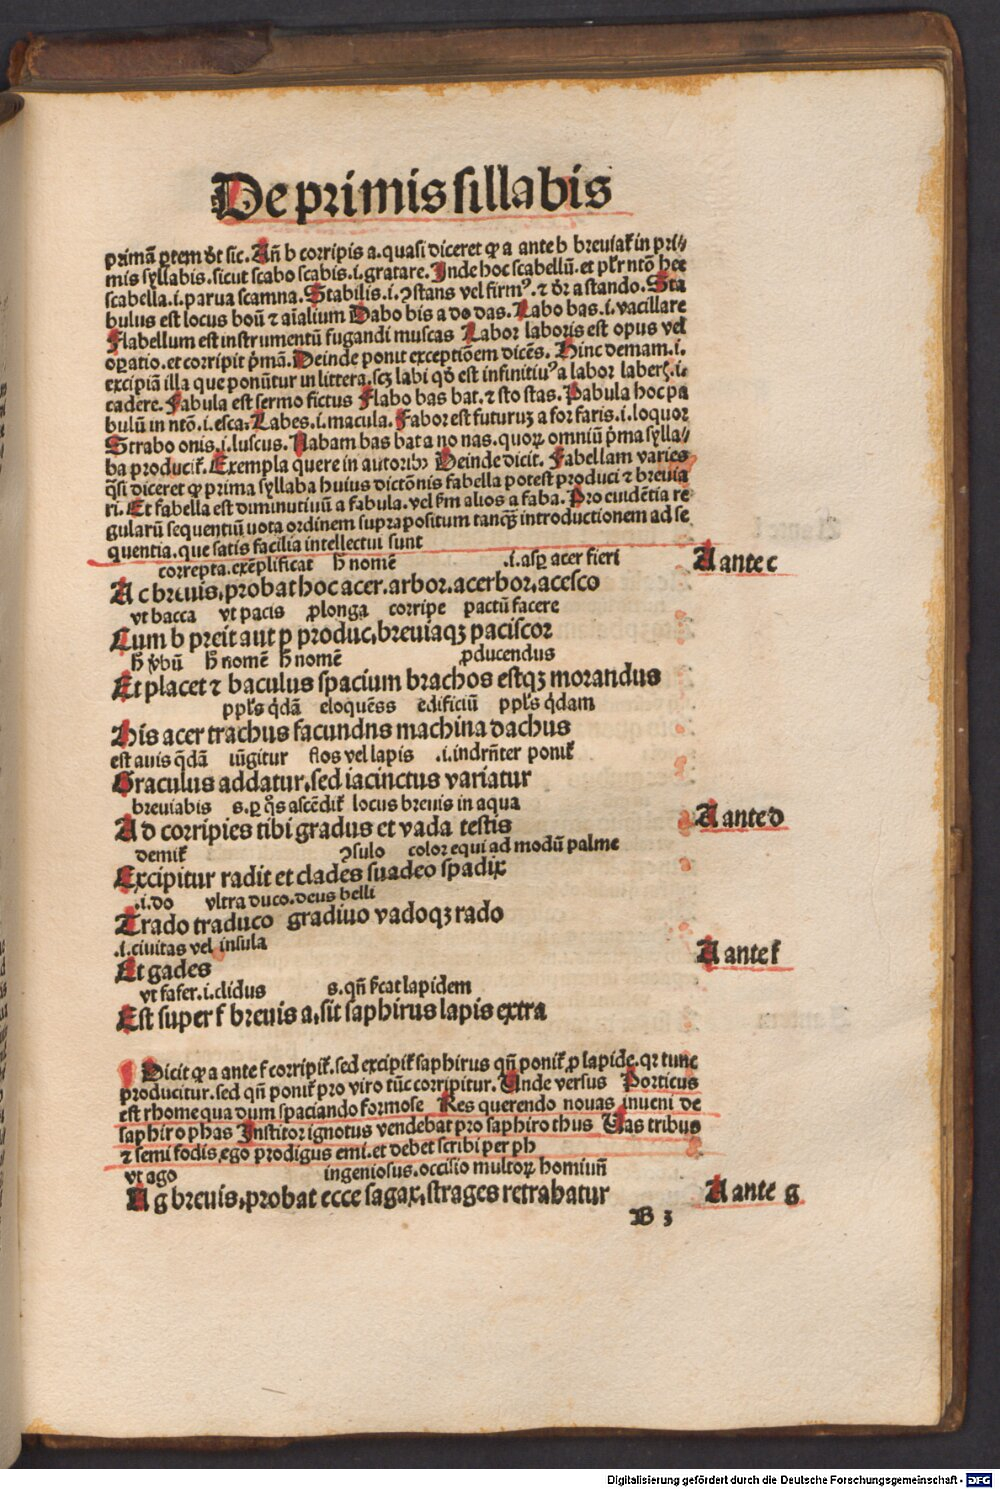 De primis sillabis
primā ꝑtem ďt sic. Añ b corripis a. quasi diceret ꝙ a ante b breviať in pri⸗
mis syllabis. sicut scabo scabis .i. gratare. Inde hoc scabellū. et plɾ ntō hec
scabella .i. parua scamna. Stabilis .i. ꝯstans vel firmꝰ. ⁊ dɾ a stando. Sta
bulus est locus boū ⁊ aīalium Dabo bis a do das. Labo bas .i. vacillare
Flabellum est instrumentū fugandi muscas Labor laboris est opus vel
oꝑatio. et corripit ṗmā. Deinde ponit exceptiōem dicēs. Hinc demam .i.
excipiā illa que ponūtur in littera. scꝫ labi qď est infinitiuꝰ a labor laberꝭ .i.
cadere. Fabula est sermo fictus Flabo bas bat. ⁊ sto stas. Pabula hoc pa
bulū in ntō. i. esca. Labes .i. macula. Fabor est futuruꝫ a for faris .i. loquor
Strabo onis .i. luscus. Nabam bas bat a no nas. quoꝝ omniū ṗma sylla⸗
ba produciť. Exempla quere in autoribꝰ Deinde dicit. Fabellam varies
q̄si diceret ꝙ prima syllaba huius dictōnis fabella potest produci ⁊ brevia
ri. Et fabella est diminutiuū a fabula. vel fm alios a faba. Pro euidētia re
gularū sequentiū uota ordinem supra positum tanq̄ꝫ introductionem ad se
quentia. que satis facilia intellectui sunt
correpta. exēplificat   ħ nomē   .i. asꝑ acer fieri
A c breuis, probat hoc acer. arbor. acerbor, acesco
A ante c
vt bacca   vt pacis   ꝓlonga   corripe   pactū facere
Cum b preit aut p produc, breuiaqꝫ paciscor
ħ ꝟbū   ħ nomē   ħ nomē   ꝓducendus
Et placet ⁊ baculus spacium brachos estqꝫ morandus
ppl̄s q̇dā   eloquēs   edificiū   ppl̄s q̇dam
His acer trachus facundns machina dachus
est auis q̄dā   iūgitur   flos vel lapis   .i. indrn̄ter poniť
Graculus addatur, sed iacinctus variatur
breviabis   s. ꝑ q̄s ascēdiť   locus brevis in aqua
A d corripies tibi gradus et vada testis
A ante d
demiť   ꝯsulo   color equi ad modū palme
Excipitur radit et clades suadeo spadix
.i. do   vltra duco. deus belli
Trado traduco gradiuo vadoqꝫ rado
.i. civitas vel insula
A ante f
Et gades
vt fafer. i. clidus   s. qn̄ sīcat lapidem
Est super f breuis a, sit saphirus lapis extra
Dicit ꝙ a ante f corripiť. sed excipiť saphirus qn̄ poniť ꝓ lapide. qꝛ tunc
producitur. sed qn̄ poniť pro viro tūc corripitur. Unde versus Porticus
est rhome qua dum spaciando formose Res querendo novas inueni de
saphiro phas Institor ignotus vendebat pro saphiro thus Uas tribus
⁊ semi fodis, ego prodigus emi. et debet scribi per ph
vt ago   ingeniosus. occisio multoꝝ homiuū
A g brevis, probat ecce sagax, strages retrabatur
A ante g
B 3
Digitalisierung gefördert durch die Deutsche Forschungsgemeinschaft - DFG